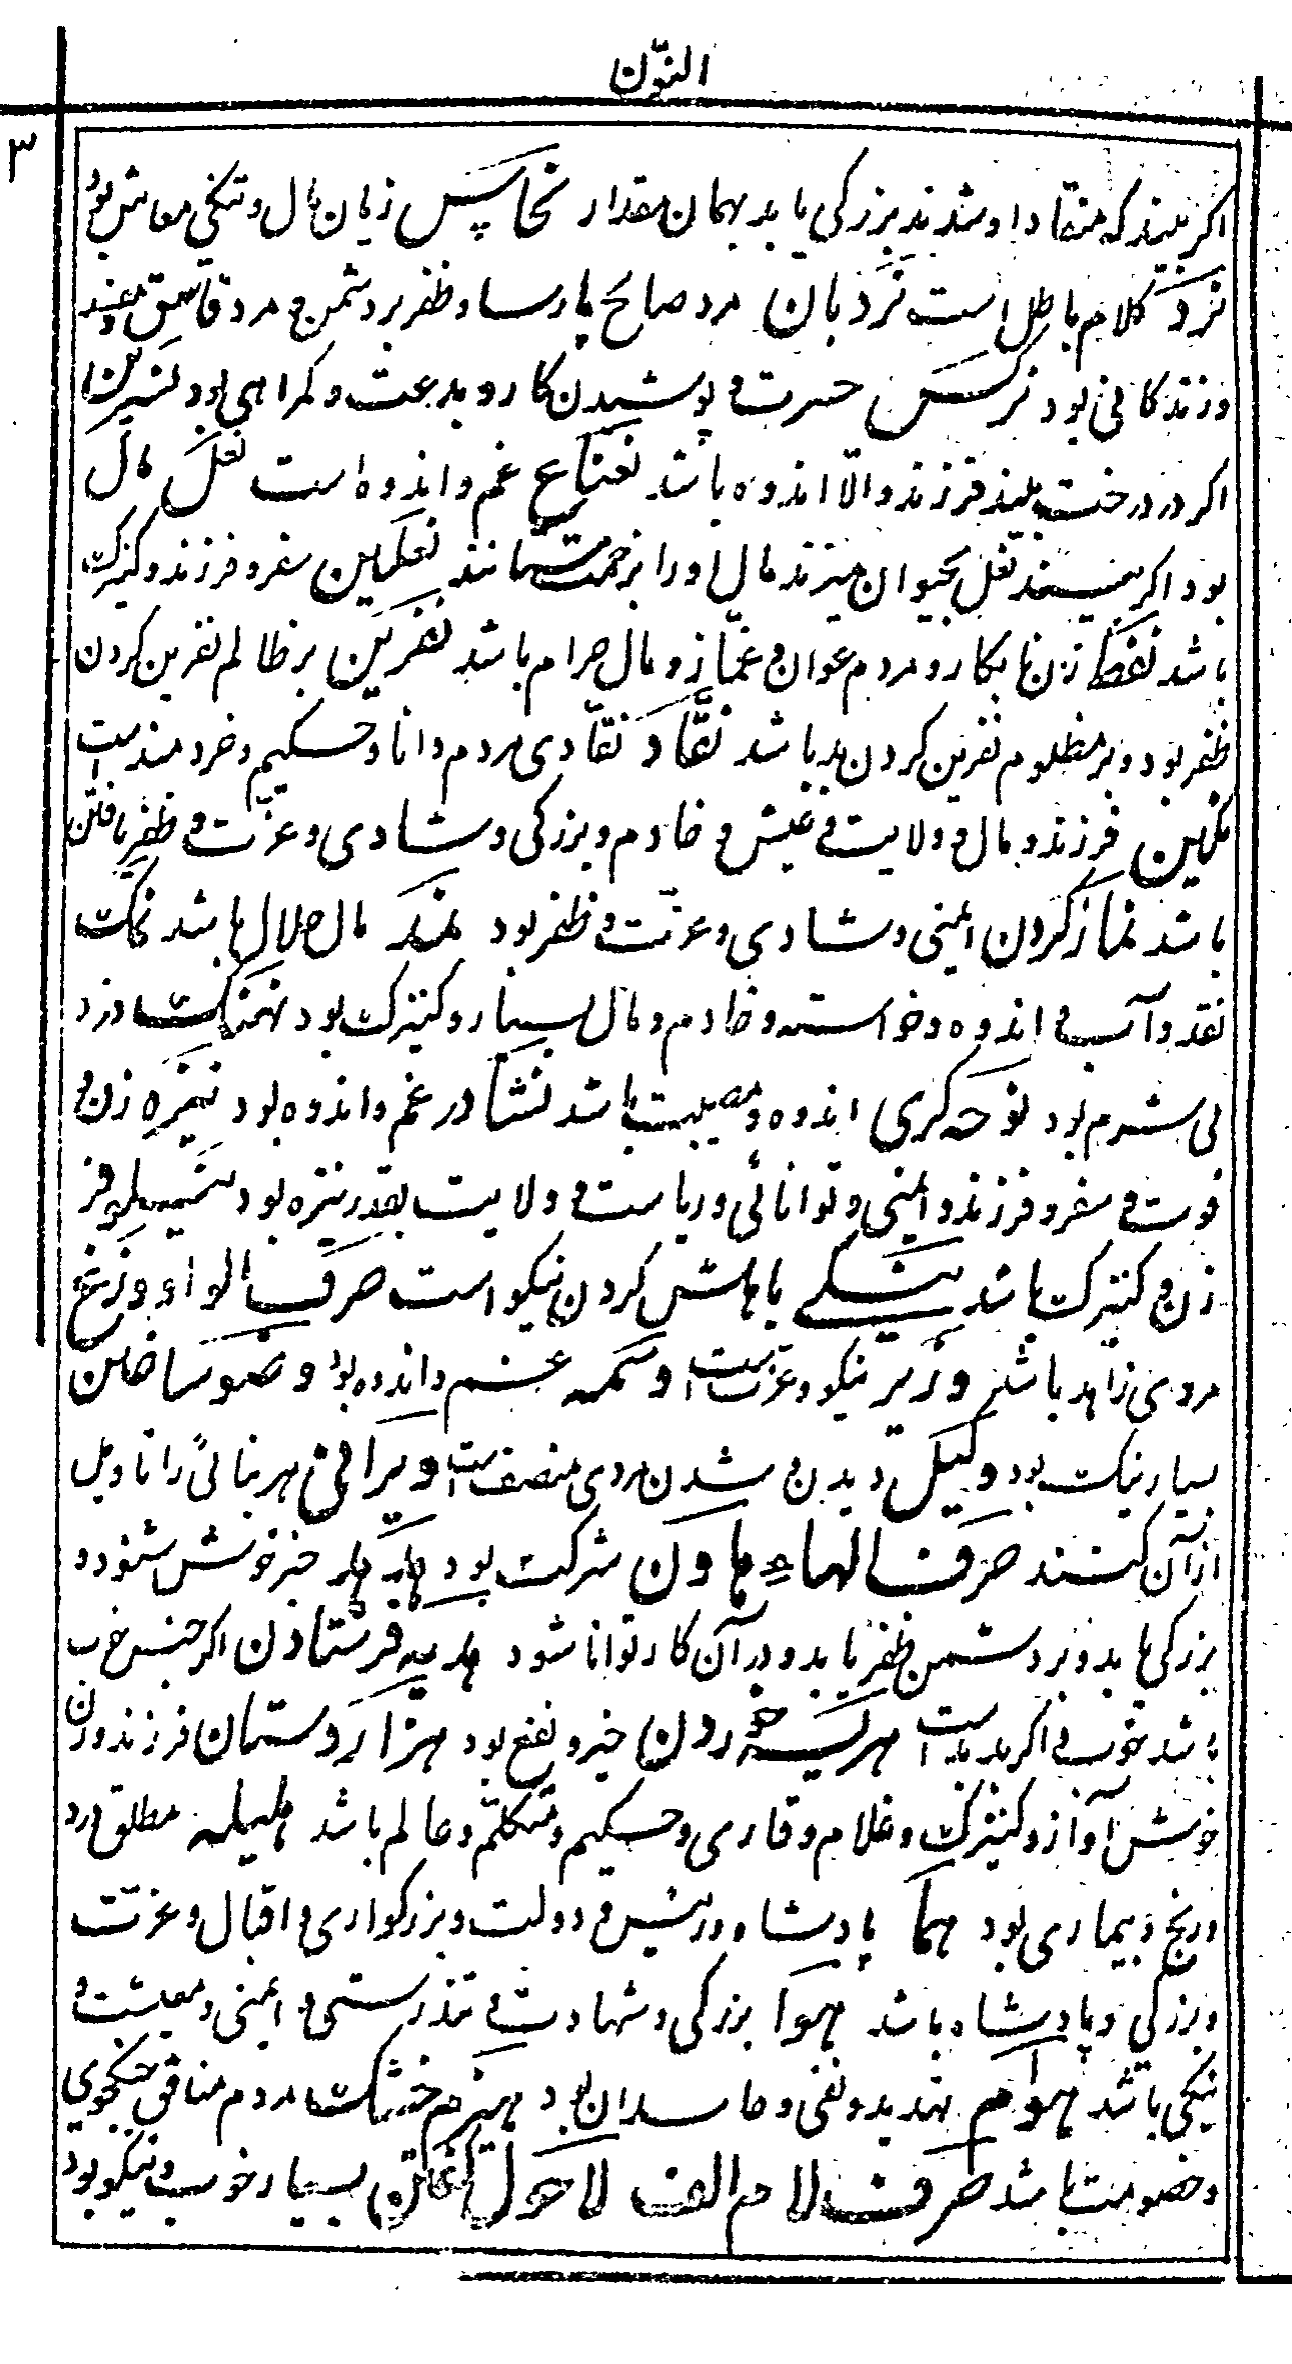 النّون
۳
اکر بیند که منقاد او شدند بزرکی یابد بهمان مقدار نخاس زیان مال و تنکی معاش بود
نرد کلام باطل است نردبان مرد صالح پارسا و ظفر بر دشمن و مرد فاسق
و زندکانی بود نرکس حسرت و پوشیدن کار و بدعت و کمراهی بود نسرین
اکر در درخت بیند فرزند و الّا اندوه باشد نعناع غم و اندوه است نعل مال
بود اکر بیند نعل بحیوان میزند مال او را بزحمت ستانند نعلین سفر و فرزند و کنیزک
باشد نفط زن نابکار و مردم عوان و غمّاز و مال حرام باشد نفرین بر ظالم نفرین کردن
ظفر بود و بر مظلوم نفرین کردن بد باشد نقّاد نقّادی مردم دانا و حکیم و خردمند است
نکین فرزند و مال و ولایت و عیش و خادم و بزرکی و شادی و عزّت و ظفر یافتن
باشد نماز کردن ایمنی و شادی و عزّت و ظفر بود نمد مال حلال باشد نمک
نقد و آب و اندوه و خواسته و خادم و مال بسیار و کنیزک بود نهنک دزد
بی شرم بود نوحه کری اندوه و مصیبت باشد نشادر غم و اندوه بود نیزه زن و
قوت و سفر و فرزند و ایمنی و توانائی و ریاست و ولایت بقدر نیزه بود
زن و کنیزک باشد نیشکی با هاش کردن نیکو است حرف الواو وزغ
مردی زاهد باشد وزیر نیکو و عزّت است وسمه غم و اندوه بود وضو ساختن
بسیار نیک بود وکیل دیدن و شدن مردی منصف است ویرانی هر بنائی را تاویل
از آن کنند حرف الهاء هاون شرکت بود هدهد خبر خوش شنود و
بزرکی یابد و بر دشمن ظفر یابد و در آن کار توانا شود هدیه فرستادن اکر جنس خوب
باشد خوب و اکر بد بد است هریسه خوردن خیر و نفع بود هزاردستان فرزند و زن
خوش آواز و کنیزک و غلام و قاری و حکیم و متکلّم و عالم باشد هلیله مطلق درد
و رنج و بیماری بود هما پادشاه و رئیس و دولت و بزرکواری و اقبال و عزّت
و بزرکی و پادشاه باشد هوا بزرکی و شهادت و تندرستی و ایمنی و معیشت و
نیکی باشد هوام تهدید و نفی و حاسدان بود هیزم خشک مردم منافق جنکجوی
و خصومت باشد حرف لام الف لا حول کفتن بسیار خوب و نیکو بود